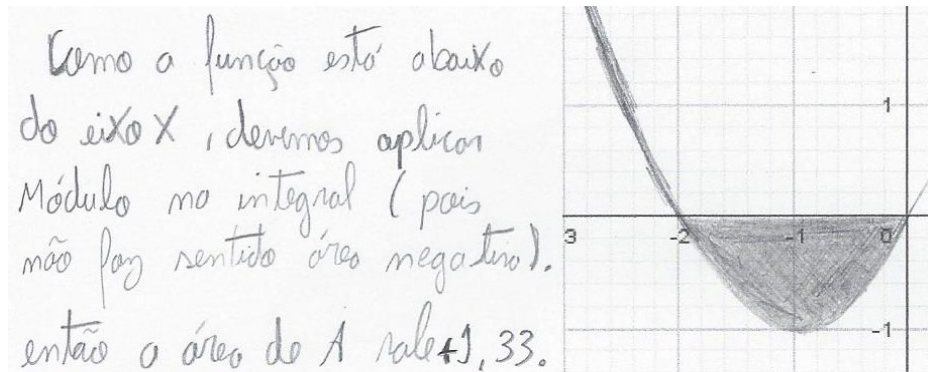 Como a função está abaixo
do eixo X, devemos aplicar
Módulo na integral (pois
não faz sentido área negativa).
então a área de A vale +1,33.
1
-3 -2 -1 0
-1